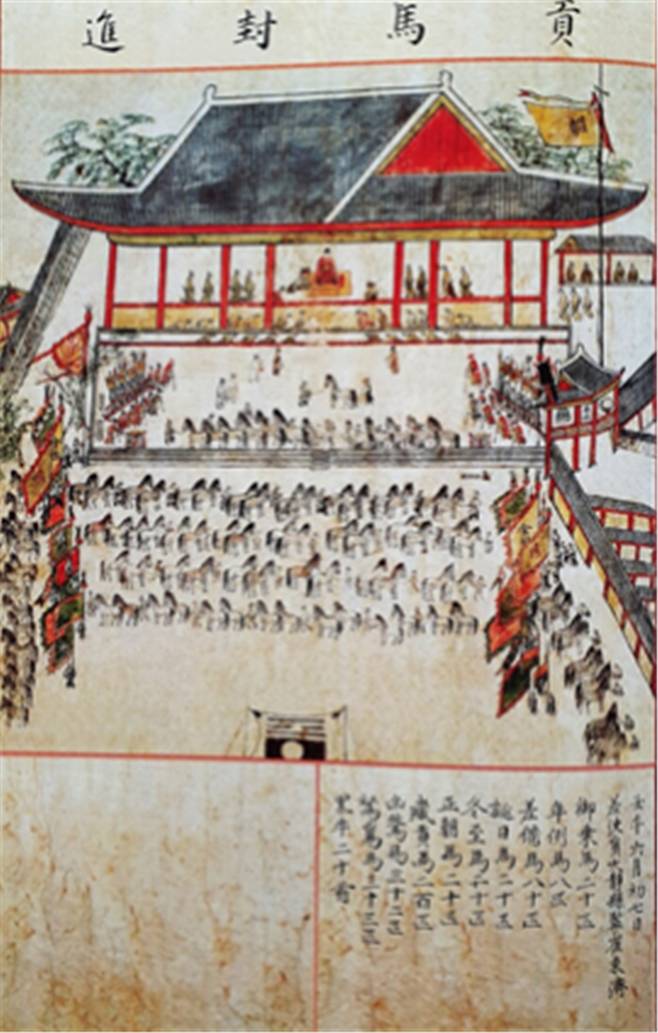 貢馬封進
壬午六月初七日
差使員大靜縣監崔東濟
御乘馬二十匹
年例馬八匹
差備馬八十匹
誕日馬二十匹
冬至馬二十匹
正朝馬二十匹
歲貢馬二百匹
馬三十二匹
馬三十三匹
黑牛二十首